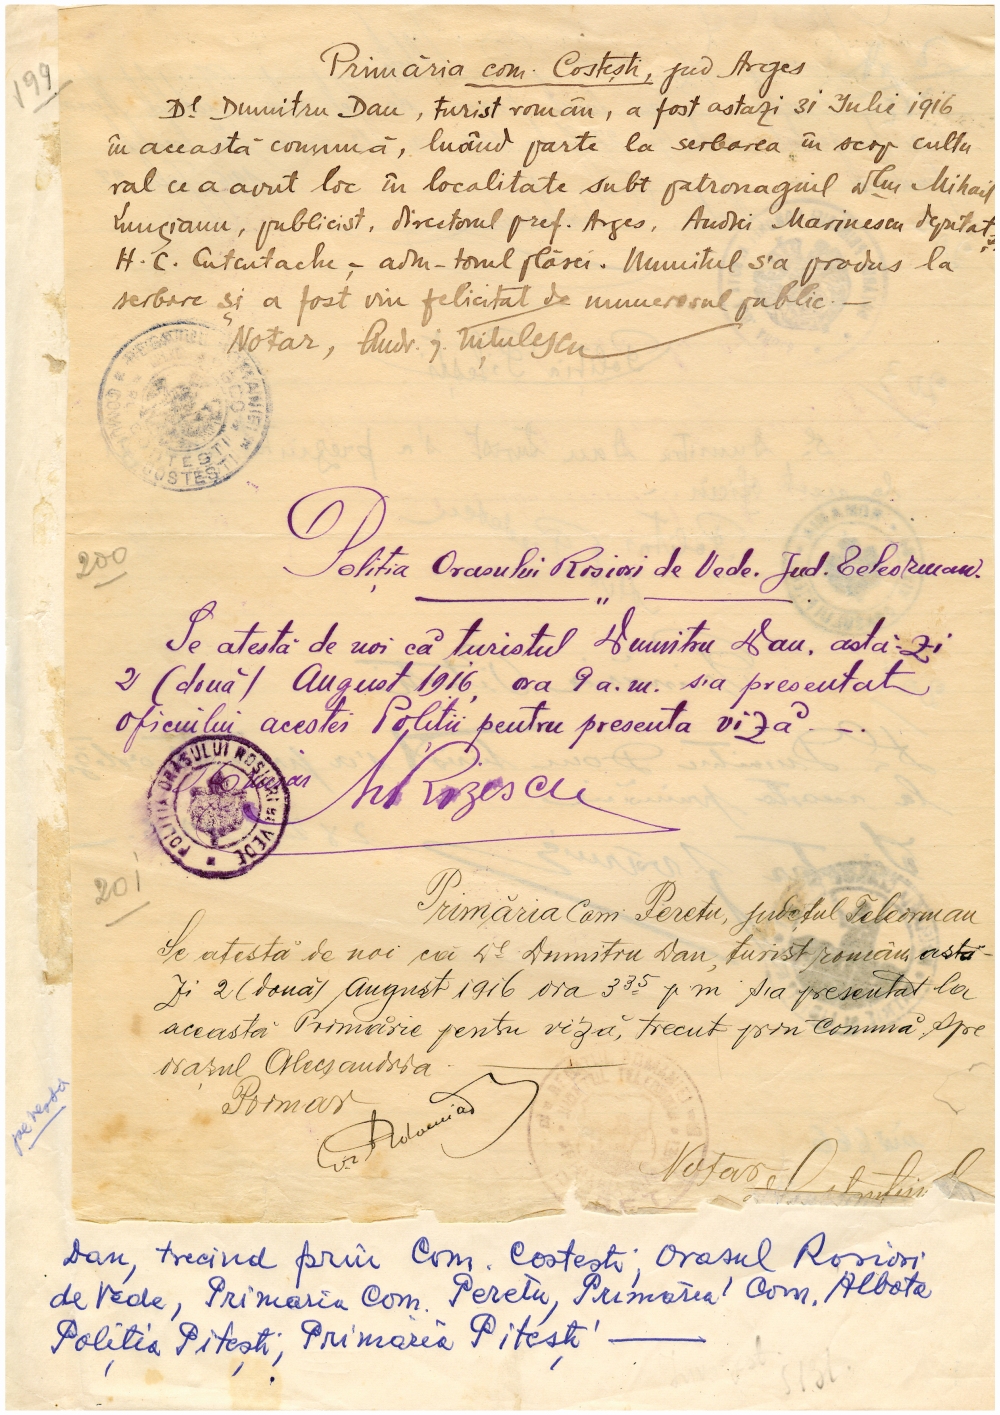 199
Primăria com. Costești, jud Argeș
Dl Dumitru Dan, turist român, a fost astazi 31 Iulie 1916
în această comună, luând parte la serbarea în scop cultu
ral ce a avut loc în localitate subt patronagiul dlui Mihail
Lungianu, publicist, directorul pref. Argeș, Andrei Marinescu deputat, și
H. C. – adm-torul plășei. Numitul s'a produs la
serbare și a fost viu felicitat de numerosul public. —
Notar, Andr. J. Nițulescu
COSTEȘTI
200
Poliția Orasului Rosiori de Vede. Jud. Teleorman.
"
Se atestă de noi că turistul Dumitru Dan, astă-zi
2 (două) August 1916, ora 9 a.m. s'a presentat
oficiului acestei Poliții pentru presenta viză. —.
POLIȚIA ORASULUI ROSIORI DE VEDE
Rizescu
201
Primăria Com Peretu, județul Teleorman
Se atestă de noi că Dl Dumitru Dan, turist român, astă-
zi 2 (două) August 1916 ora 3 35 p m s'a presentat la
această Primărie pentru viză, trecut prin comună, spre
orașul Alecsandria.
Primar
Notar
pe verso
Dan, trecind prin Com. Costești, Orasul Rosiori
de Vede, Primaria Com. Peretu, Primăria Com. Albota
Poliția Pitești, Primăria Pitești —